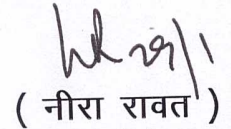 ( नीरा रावत )